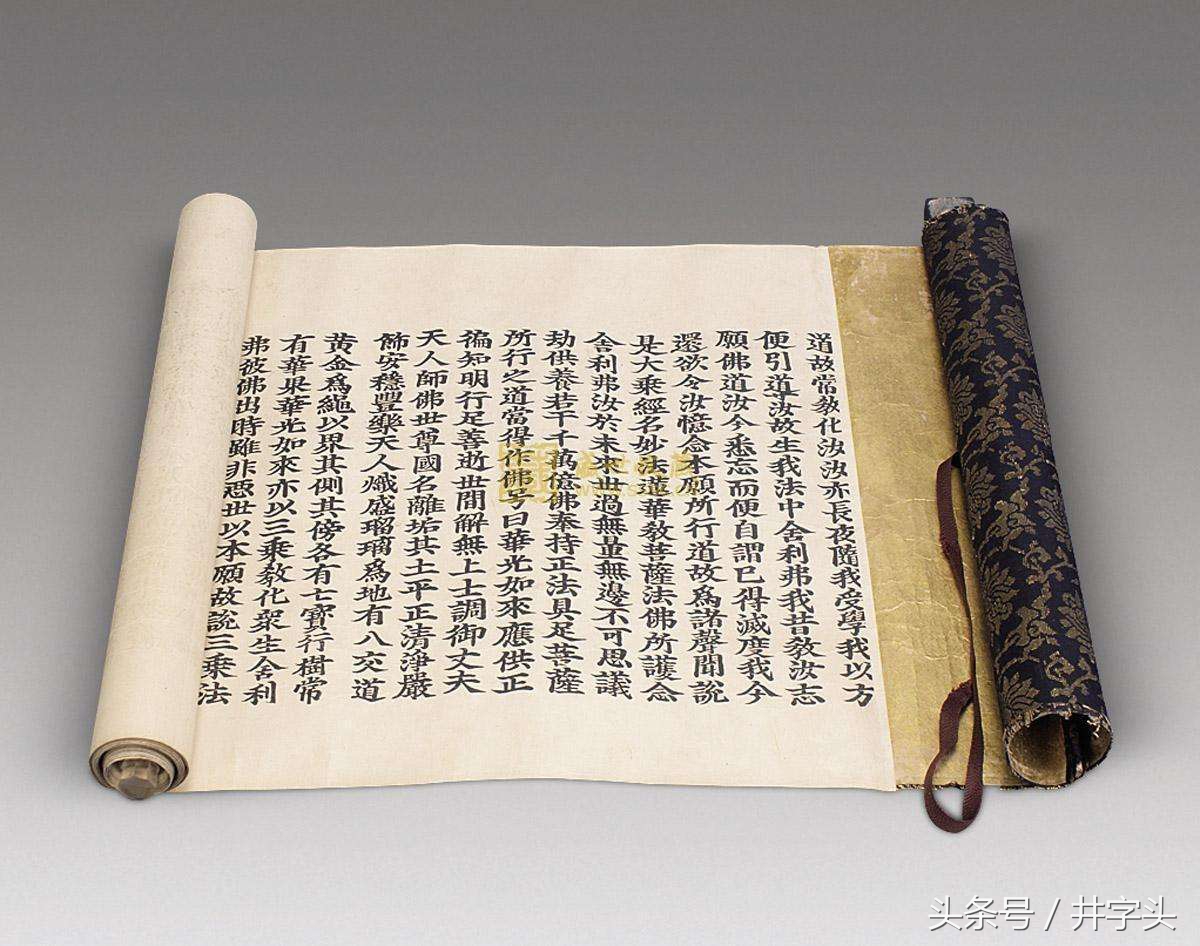 道故常教化汝汝亦長夜隨我受學我以方
便引導汝故生我法中舍利弗我昔教汝志
願佛道汝今悉忘而便自謂已得滅度我今
還欲令汝憶念本願所行道故爲諸聲聞說
是大乘經名妙法蓮華教菩薩法佛所護念
舍利弗汝於未來世過無量無邊不可思議
劫供養若干千萬億佛奉持正法具足菩薩
所行之道當得作佛号曰華光如來應供正
徧知明行足善逝世間解無上士調御丈夫
天人師佛世尊國名離垢其土平正清淨嚴
飾安穩豐樂天人熾盛瑠璃爲地有八交道
黃金爲繩以界其側其傍各有七寶行樹常
有華果華光如來亦以三乘教化眾生舍利
弗彼佛出時雖非惡世以本願故說三乘法
头条号 / 井字头